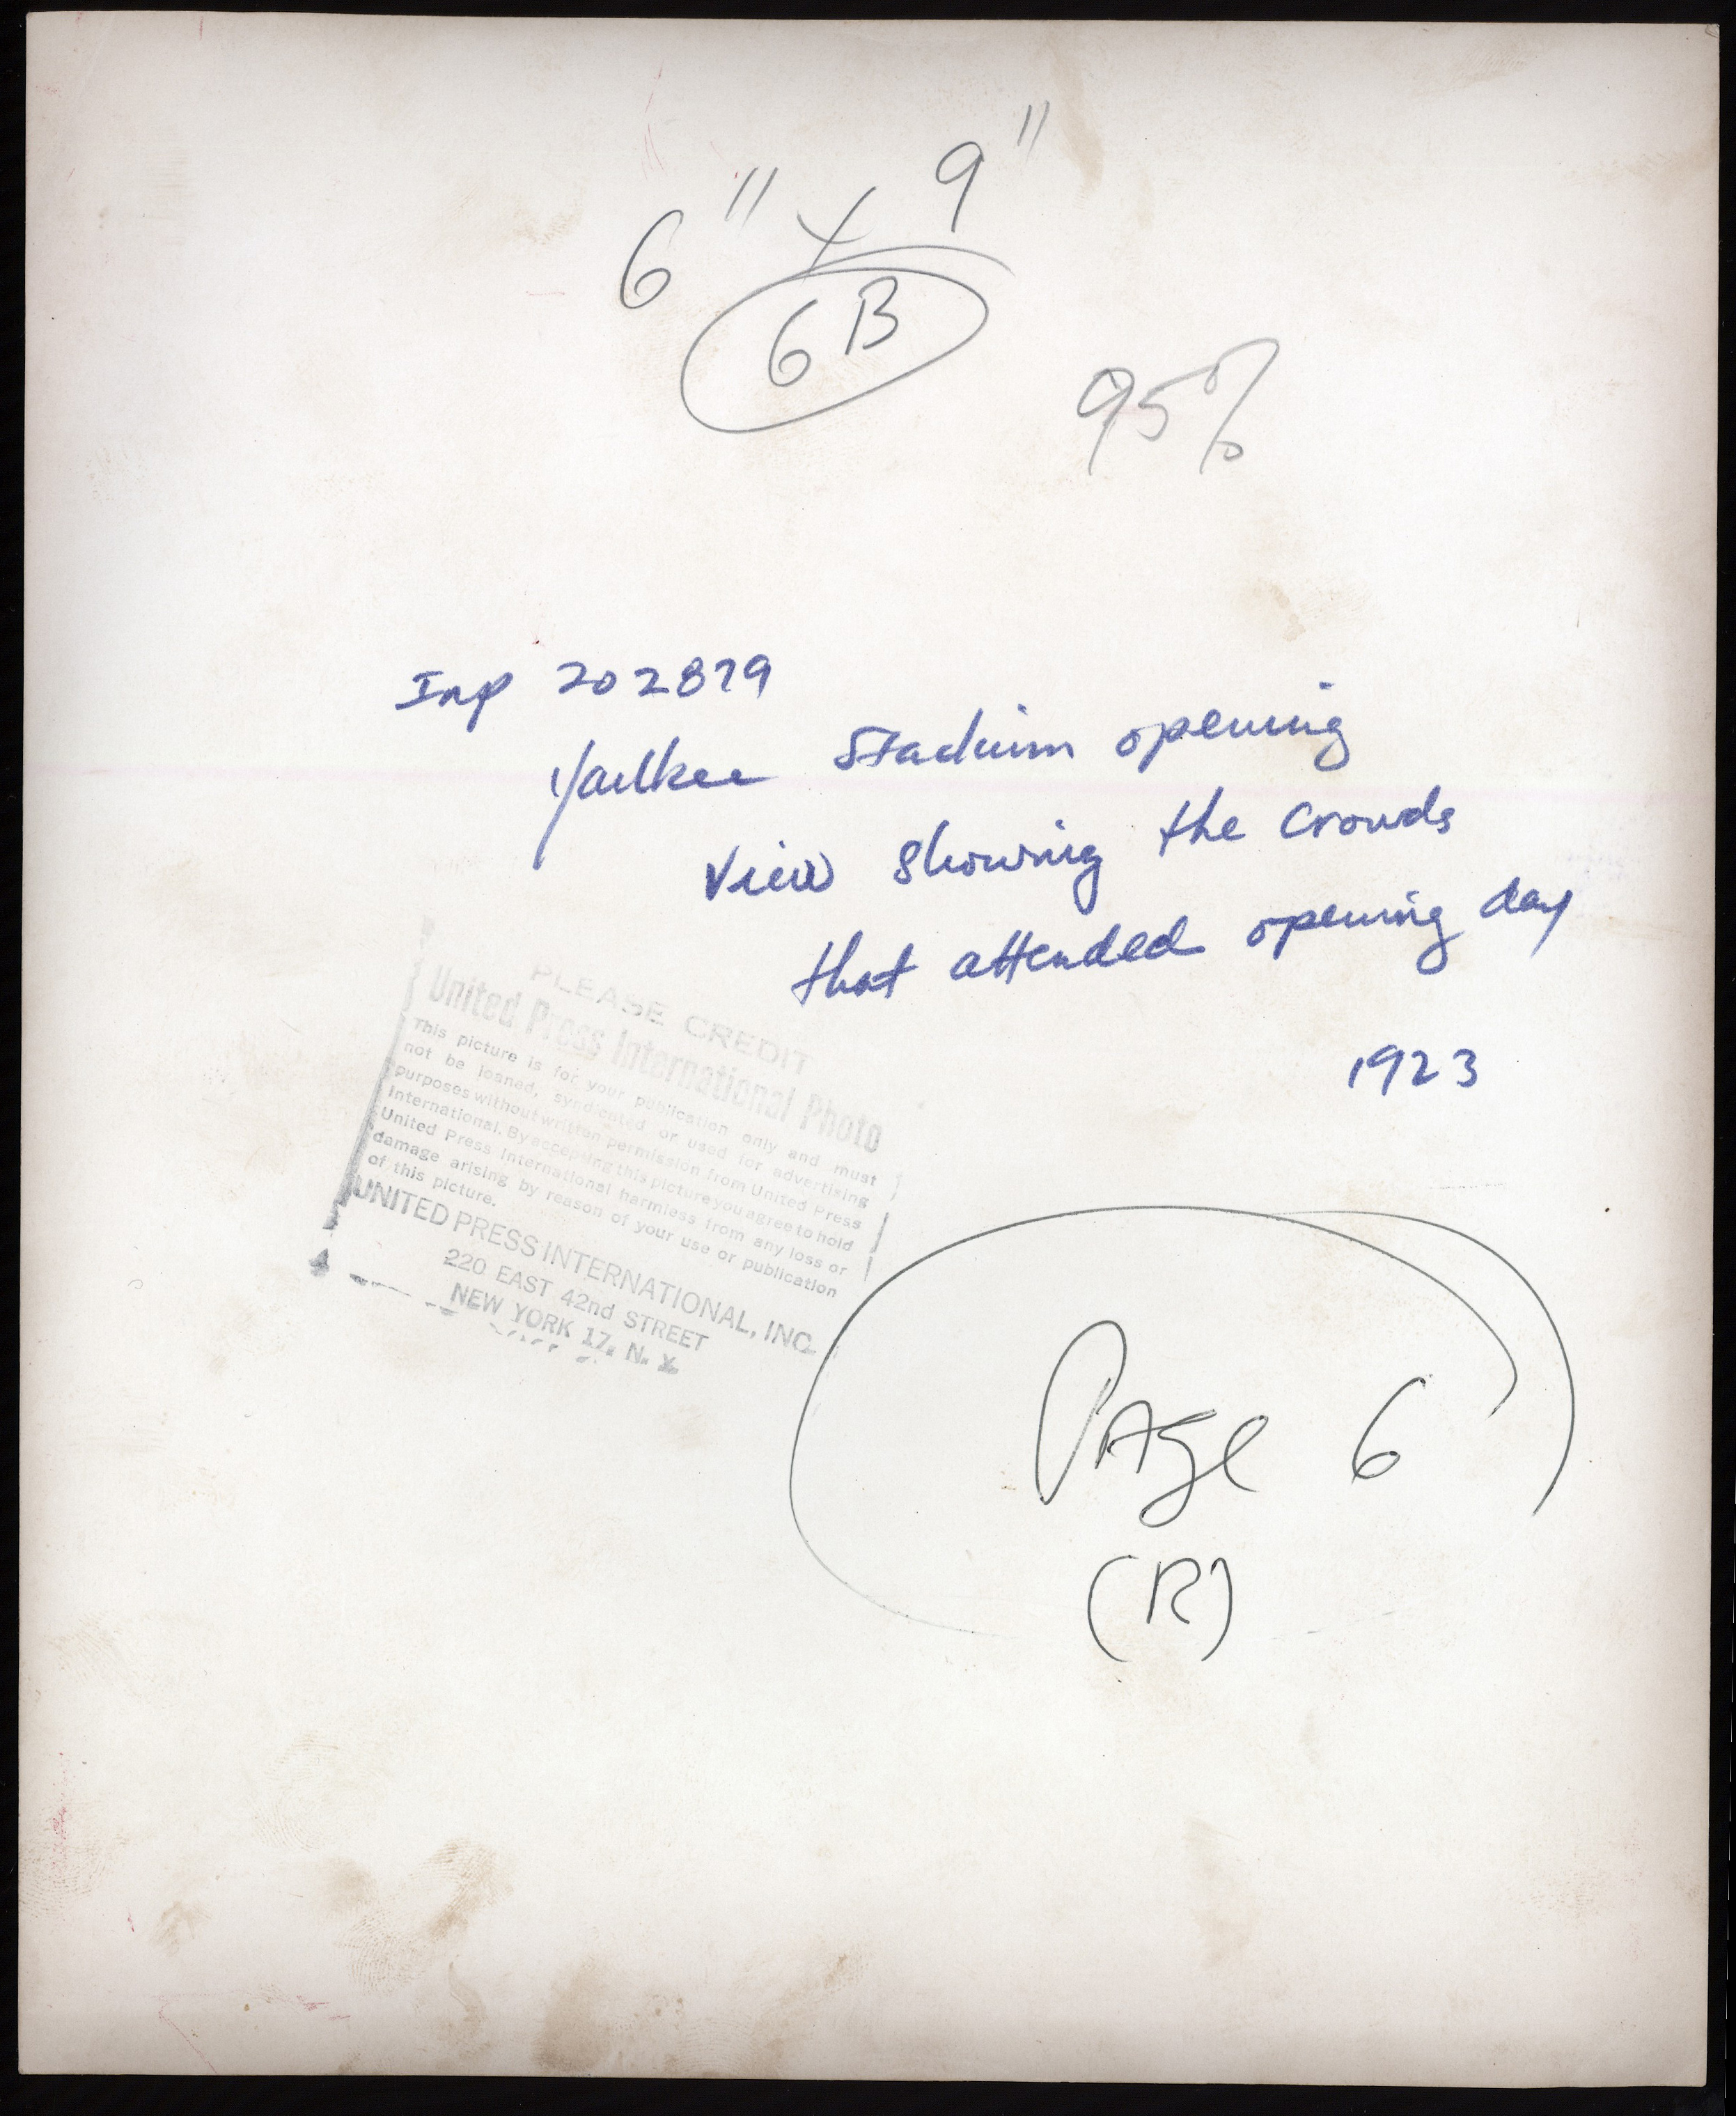 6" x 9"
6B
95%
Inp 202879
Yankee Stadium opening
View showing the crowds
that attended opening day
1923
PLEASE CREDIT
United Press International Photo
This picture is for your publication only and must
not be loaned, syndicated or used for advertising
purposes without written permission from United Press
International. By accepting this picture you agree to hold
United Press International harmless from any loss or
damage arising by reason of your use or publication
of this picture.
UNITED PRESS INTERNATIONAL, INC.
220 EAST 42nd STREET
NEW YORK 17, N. Y.
PAge 6
(R)